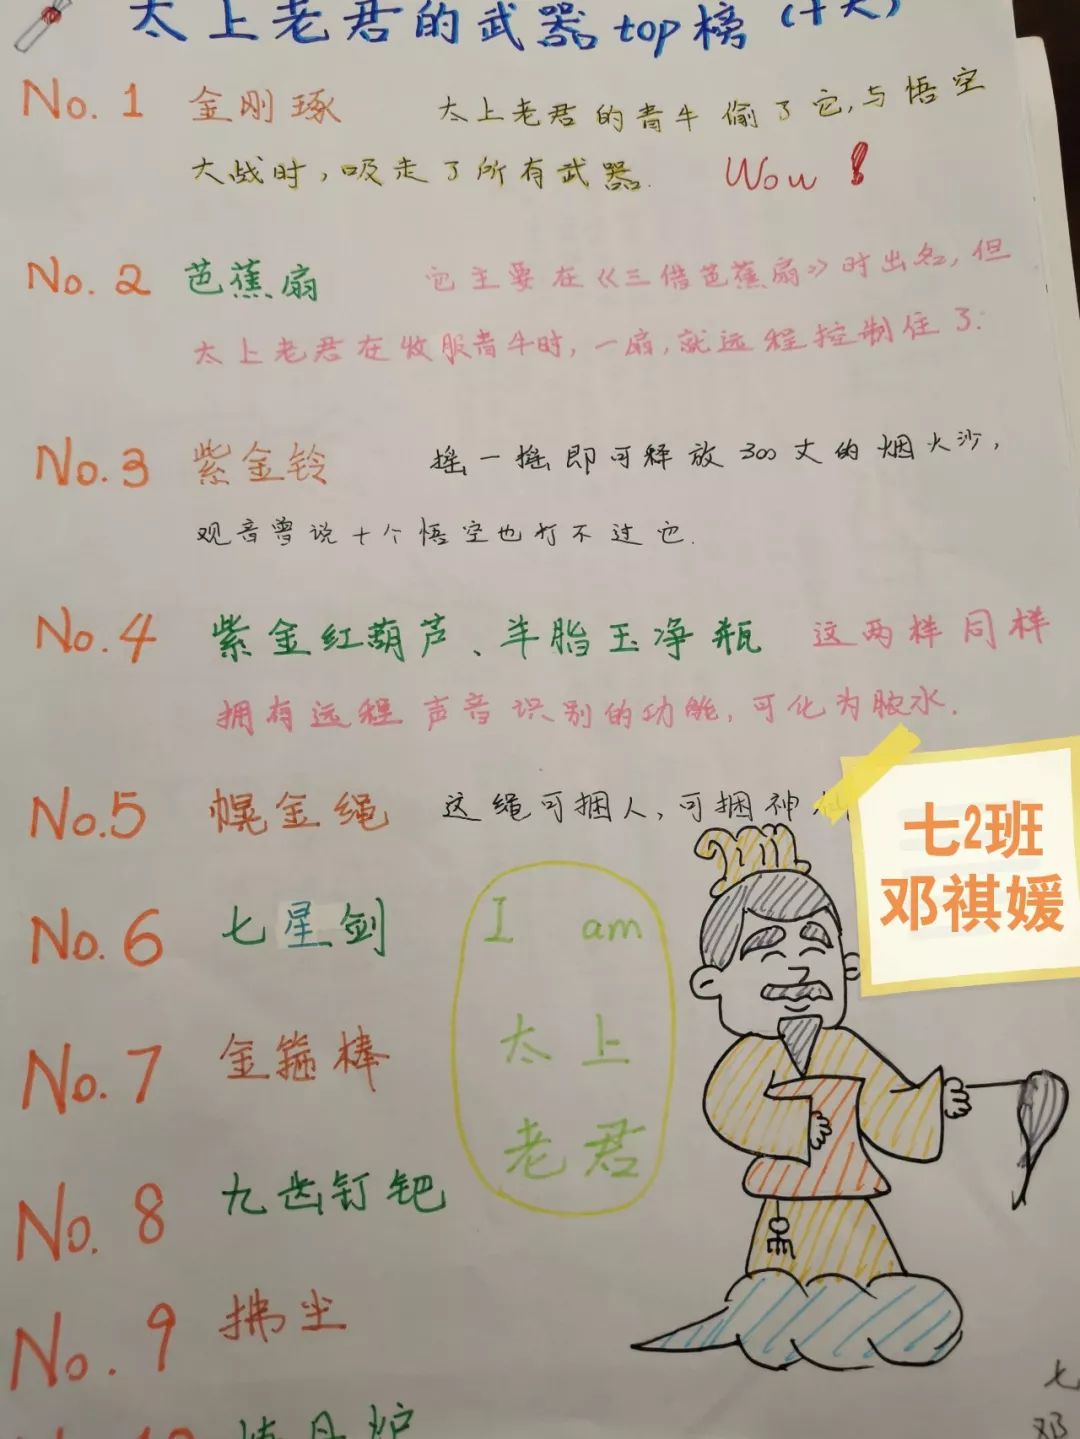 太上老君的武器top榜(十大)
No.1 金刚琢 太上老君的青牛偷了它,与悟空
大战时,吸走了所有武器. Wow!
No.2 芭蕉扇 它主要在《三借芭蕉扇》时出名,但
太上老君在收服青牛时,一扇,就远程控制住了.
No.3 紫金铃 摇一摇即可释放300丈的烟火沙,
观音曾说十个悟空也打不过它.
No.4 紫金红葫芦、羊脂玉净瓶 这两样同样
拥有远程声音识别的功能,可化为脓水.
No.5 幌金绳 这绳可捆人,可捆神,
七2班
邓祺媛
No.6 七星剑
I am
太上
老君
No.7 金箍棒
No.8 九齿钉钯
No.9 拂尘
No.10 炼丹炉
七
邓